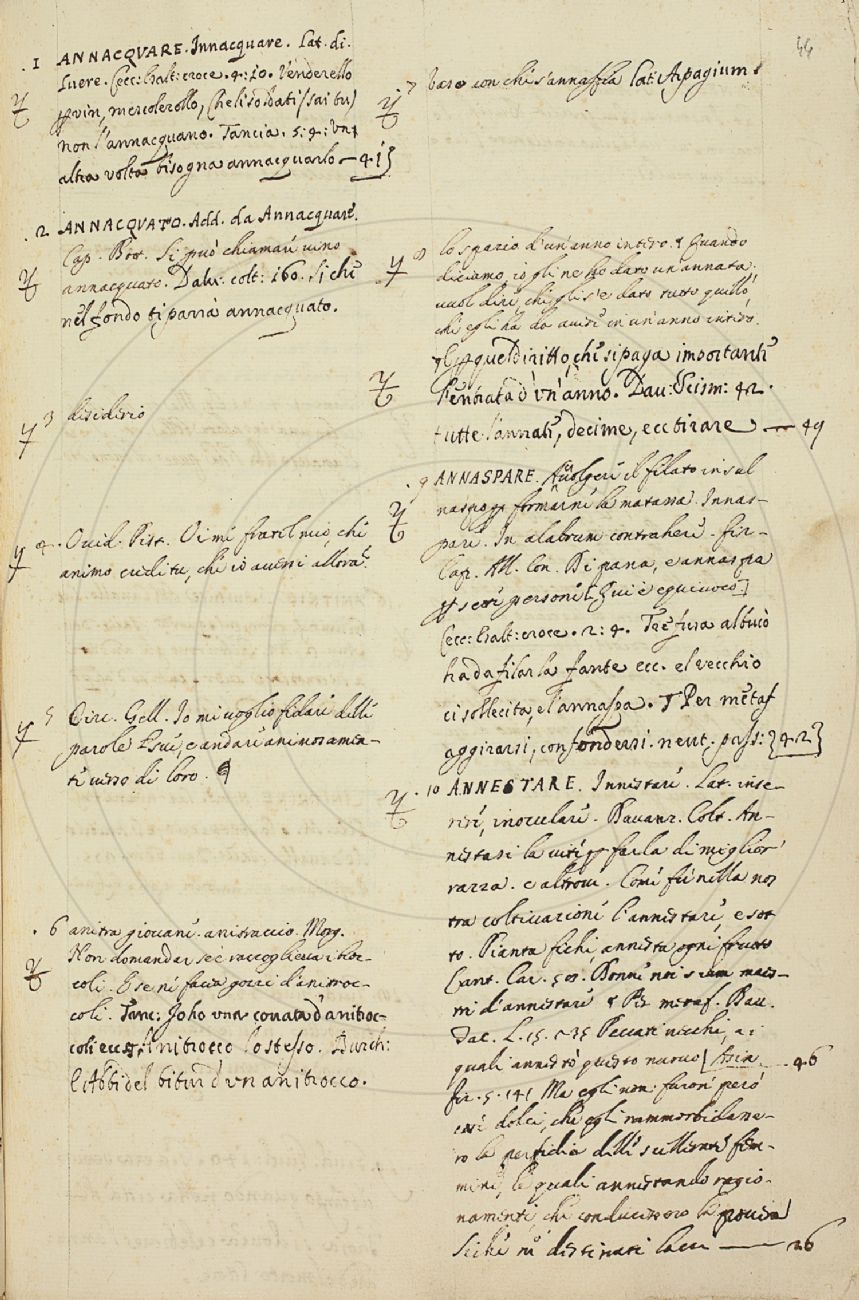 44
1 ANNACQVARE. Innacquare. Lat. di-
luere. Cecc: Esalt: croce. 4: 10. Venderello
vin, mercolerollo, che li soldati (sai tu)
non l'annacquano. Tancia. 5: 4: Vn'
altra volta bisogna annacquarlo — 41}
2 ANNACQVATO. Add. da Annacquare.
Cap. Bott. Si può chiamare vino
annacquato. Dav: colt: 160. Si che
nel fondo ti parrà annacquato.
3 disiderio
4. Ovid. Pist. Oimè fratel mio, che
animo credi tu, che io avessi allora?
5 Circ. Gell. Io mi voglio fidare delle
parole sue, e andare animosamen-
te verso di loro.
6 anitra giovane. anitraccio. Morg.
Non domandar se e' raccoglieva i bioc-
coli. E se ne facea gozzi d'anitroc-
coli. Tanc: Io ho una covata d'anitroc-
coli ecc. Anitrocco lo stesso. Burch:
E ebbi del bitur d'un anitrocco.
7 vaso con che s'annaffia lat: Arpagium.
8 lo spazio d'un'anno intero. Quando
diciamo, io gli ne ho dato un'annata,
vuol dire, che gli s'è dato tutto quello,
che egli ha da avere in un'anno intero.
E quel diritto, che si paga importante
l'entrata d'un'anno. Dav: Scism: 42.
tutte l'annate, decime, ecc tirare — 49
9 ANNASPARE. Avolgere il filato in sul
naspo formarne la matassa. Innas-
pare. In alabrum contrahere. Fir-
Cap. All. Con. Dipana, e annaspa
sei persone [Qui è equivoco]
Cecc: Esalt: croce. 2: 4. Tre fusa al buio
ha da filar la fante ecc. e'l vecchio
ci sollecita, e l'annaspa. Per metaf
aggirarsi, confondersi. neut. pass: {42}
10 ANNESTARE. Innestare. Lat. inse-
rere, inoculare. Davanz. Colt. An-
nestasi la vite farla di miglior
razza. e altrove. Come fu nella nos
tra coltivazione l'annestare, e sot
to. Pianta fichi, annesta ogni frutto
Cant. Car. 509. Donne noi siam maes-
tri d'annestare Per metaf. Dav.
Tac. L. 15. 235 Peccati vecchi, a i
quali annestò questo nuovo [Asin. — 46
fir. 5. 141 Ma egli non furon però
così dolci, che egli rammorbidasse-
ro la perfidia delle scellerate fem-
mine, le quali annestando ragio-
namenti, che conducessero la
— 26